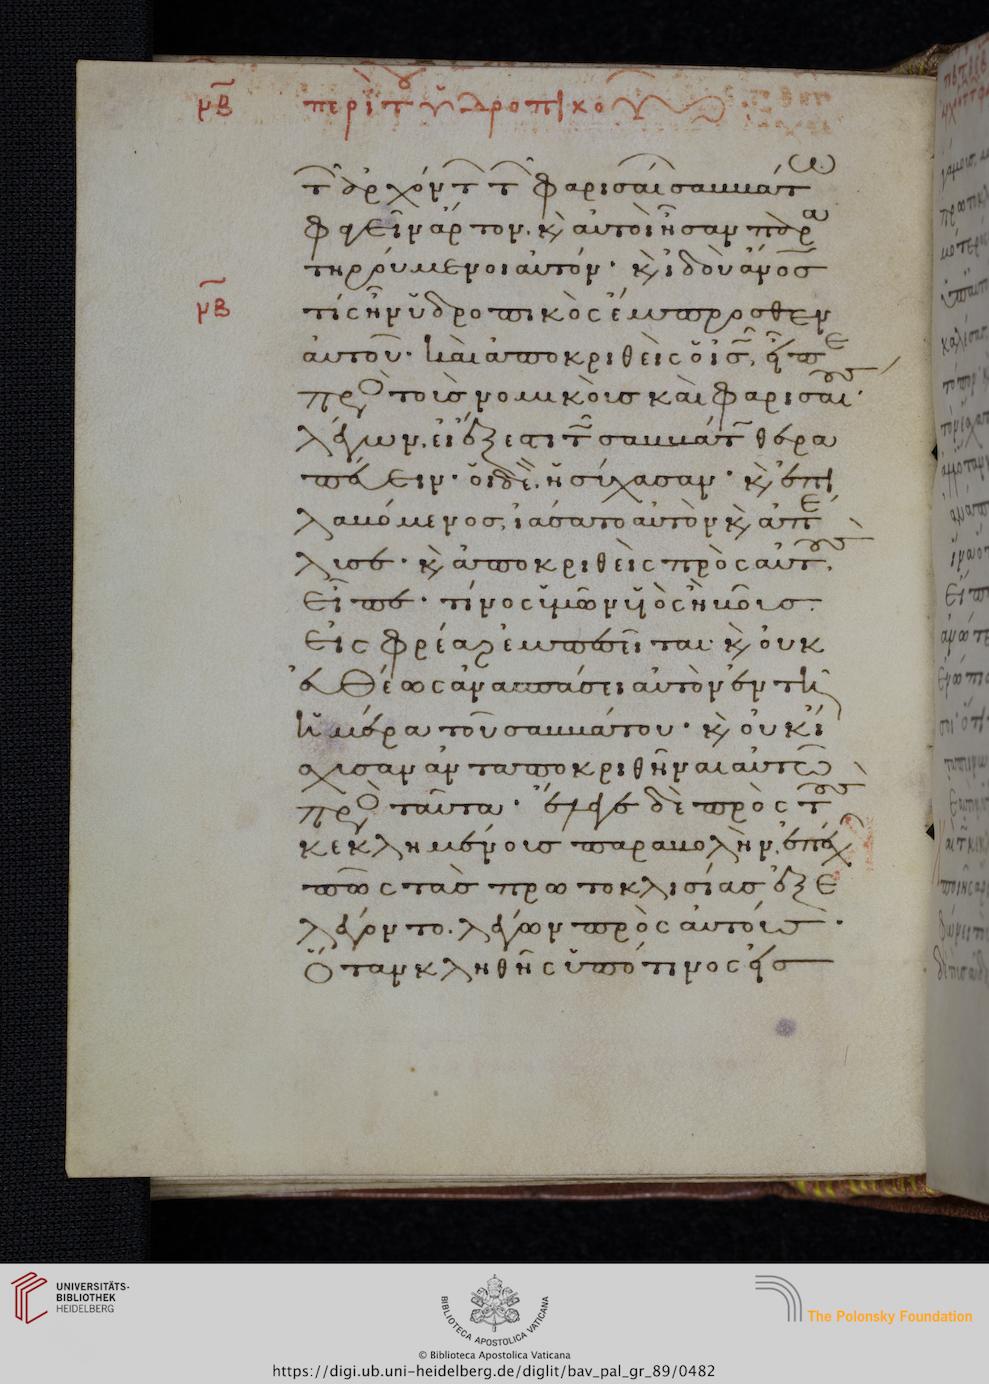 μβ περὶ τοῦ ὑδρωπικοῦ
τῶν ἀρχόντων τῶν φαρισαίων σαββάτω
φαγεῖν ἄρτον. καὶ αὐτοὶ ἦσαν παρα
τηρούμενοι αὐτόν· καὶ ἰδοὺ ἄνος
μβ τίς ἦν ὑδροπικὸς ἔμπροσθεν
αὐτοῦ· καὶ ἀποκριθεὶς ὁ ις, εἶπε
πρὸς τοὺς νομικοὺς καὶ φαρισαίους
λέγων. εἰ ἔξεστι τῶ σαββάτω θερα
πεύειν· οἱ δὲ ἡσύχασαν· καὶ ἐπι
λαβόμενος, ἰάσατο αὐτὸν καὶ ἀπέ
λυσε· καὶ ἀποκριθεὶς πρὸς αὐτοὺς,
εἶπε· τίνος ὑμῶν υἱὸς ἢ βοῦς
εἰς φρέαρ ἐμπεσεῖται· καὶ οὐκ
εὐθέως ἀνασπάσει αὐτὸν ἐν τῆ
ἡμέρα τοῦ σαββάτου· καὶ οὐκ ἴ
σχυσαν ἀνταποκριθῆναι αὐτῶ
πρὸς ταῦτα· ἔλεγε δὲ πρὸς τοὺς
κεκλημένους παραβολὴν, ἐπέχων
πῶς τὰς πρωτοκλισίας ἐξε
λέγοντο. λέγων πρὸς αὐτούς·
Ὅταν κληθῆς ὑπό τινος εἰς
UNIVERSITÄTS-
BIBLIOTHEK
HEIDELBERG
BIBLIOTECA APOSTOLICA VATICANA
The Polonsky Foundation
© Biblioteca Apostolica Vaticana
https://digi.ub.uni-heidelberg.de/diglit/bav_pal_gr_89/0482